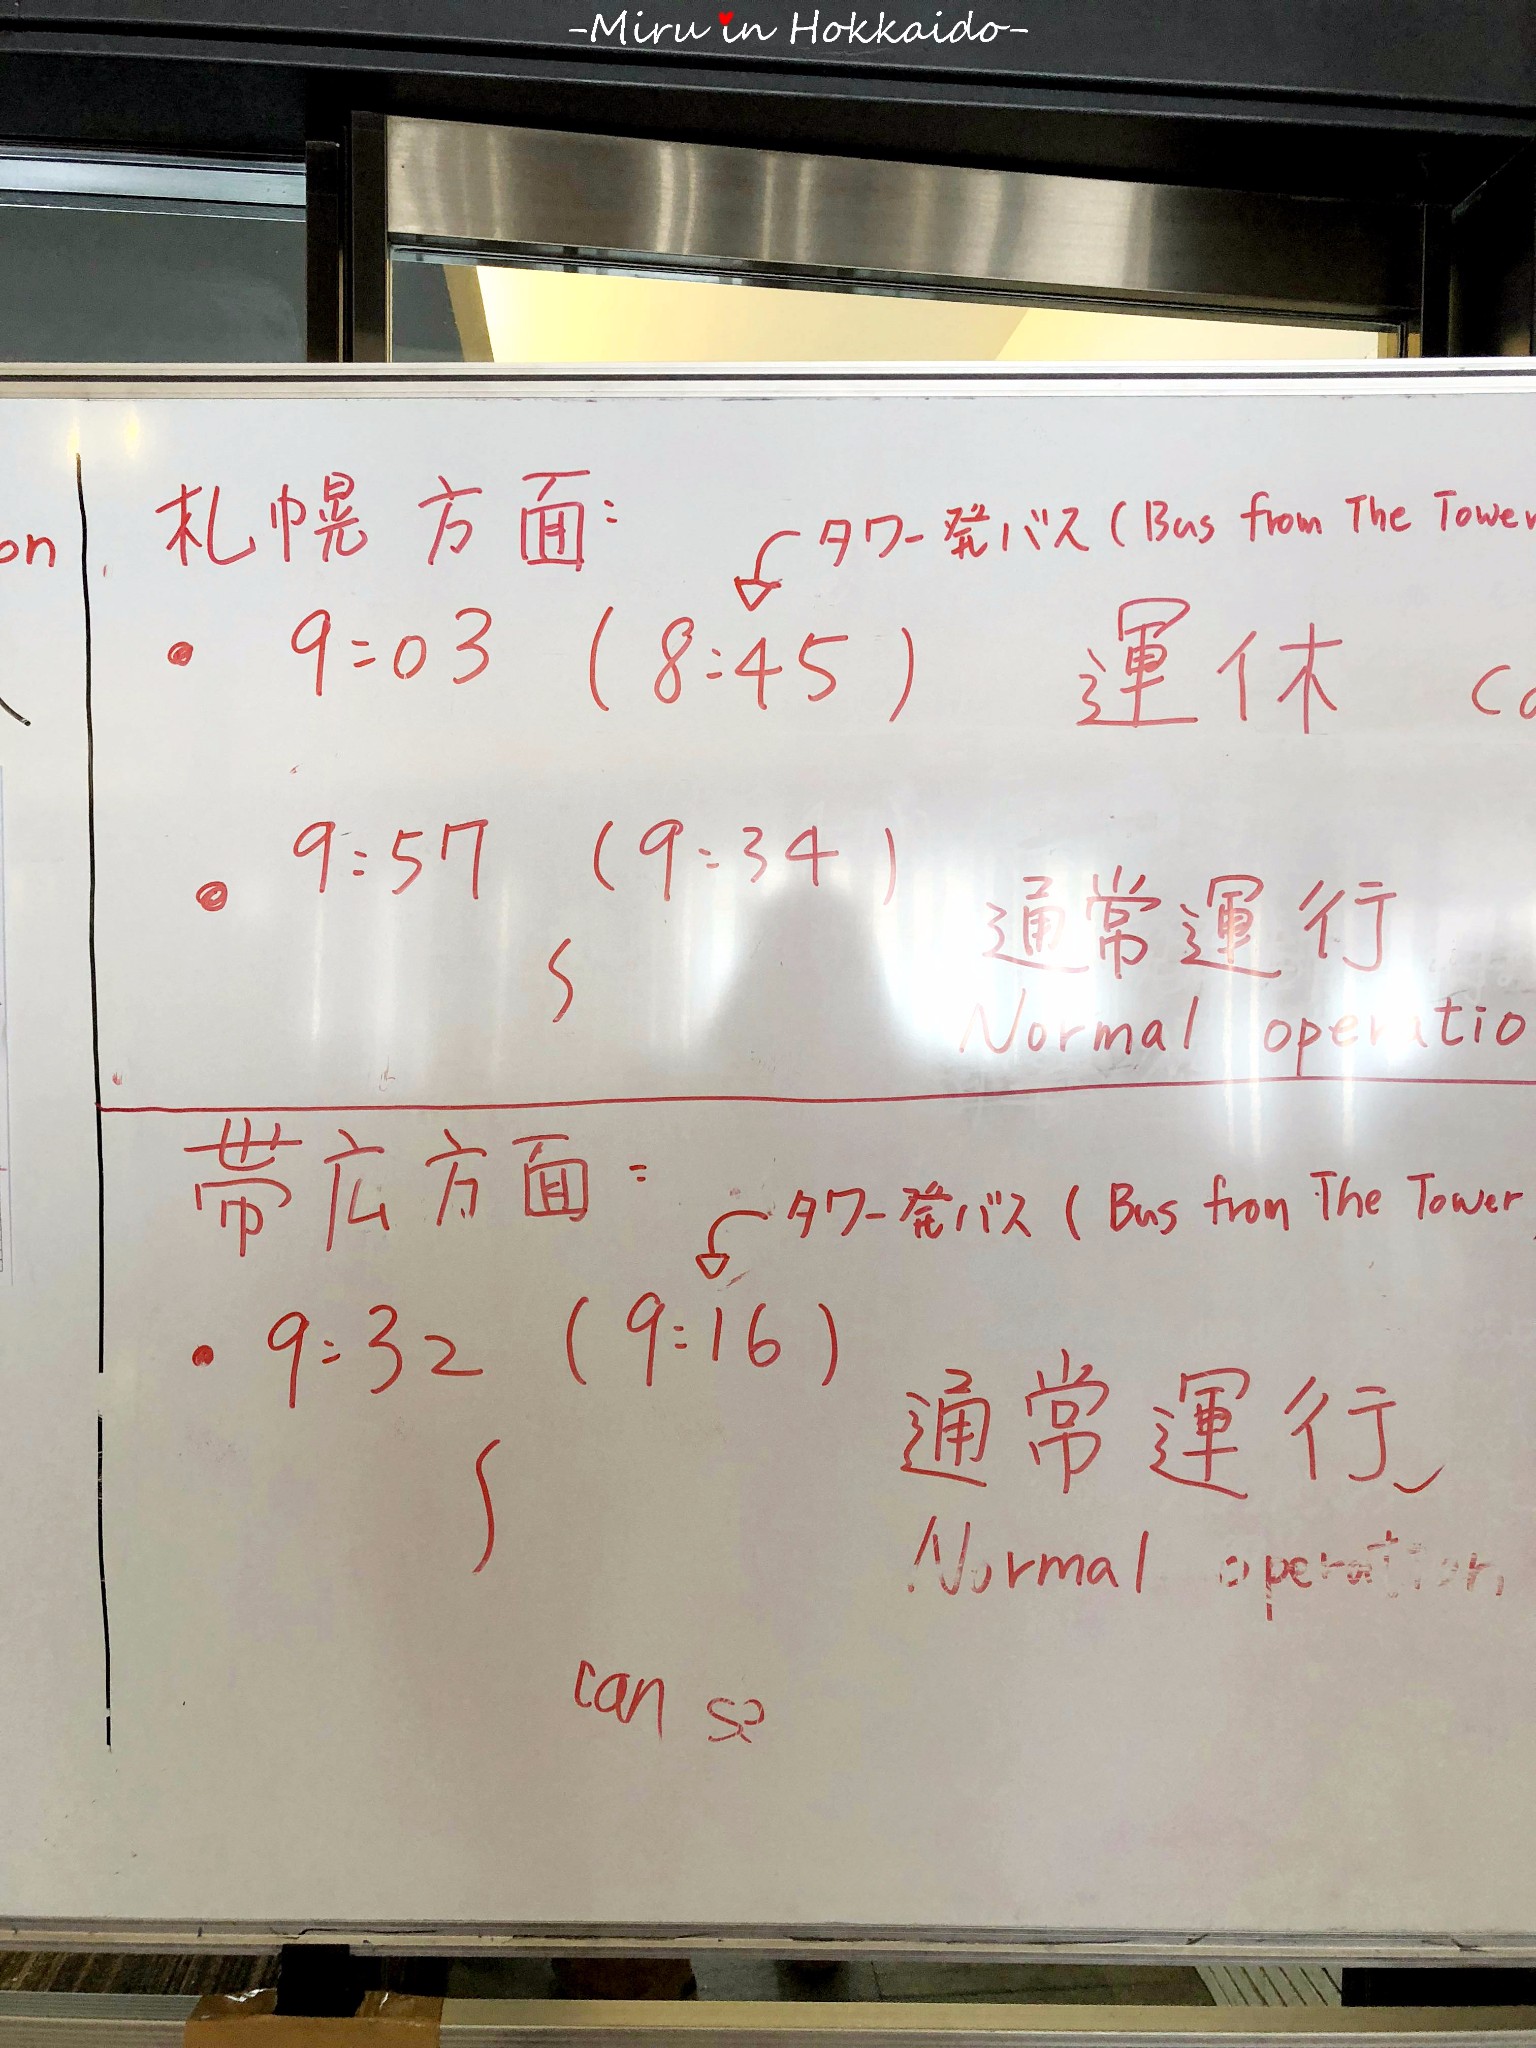 -Miru in Hokkaido-
on
札幌方面:
タワー発バス (Bus from The Tower
・ 9:03 (8:45) 運休
・ 9:57 (9:34) 通常運行
〜
Normal operatio
帯広方面:
タワー発バス (Bus from The Tower
・ 9:32 (9:16) 通常運行
〜
Normal operation
can